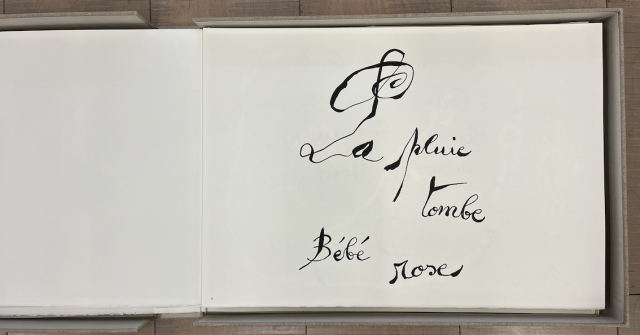 La pluie
tombe
Bébé
rose